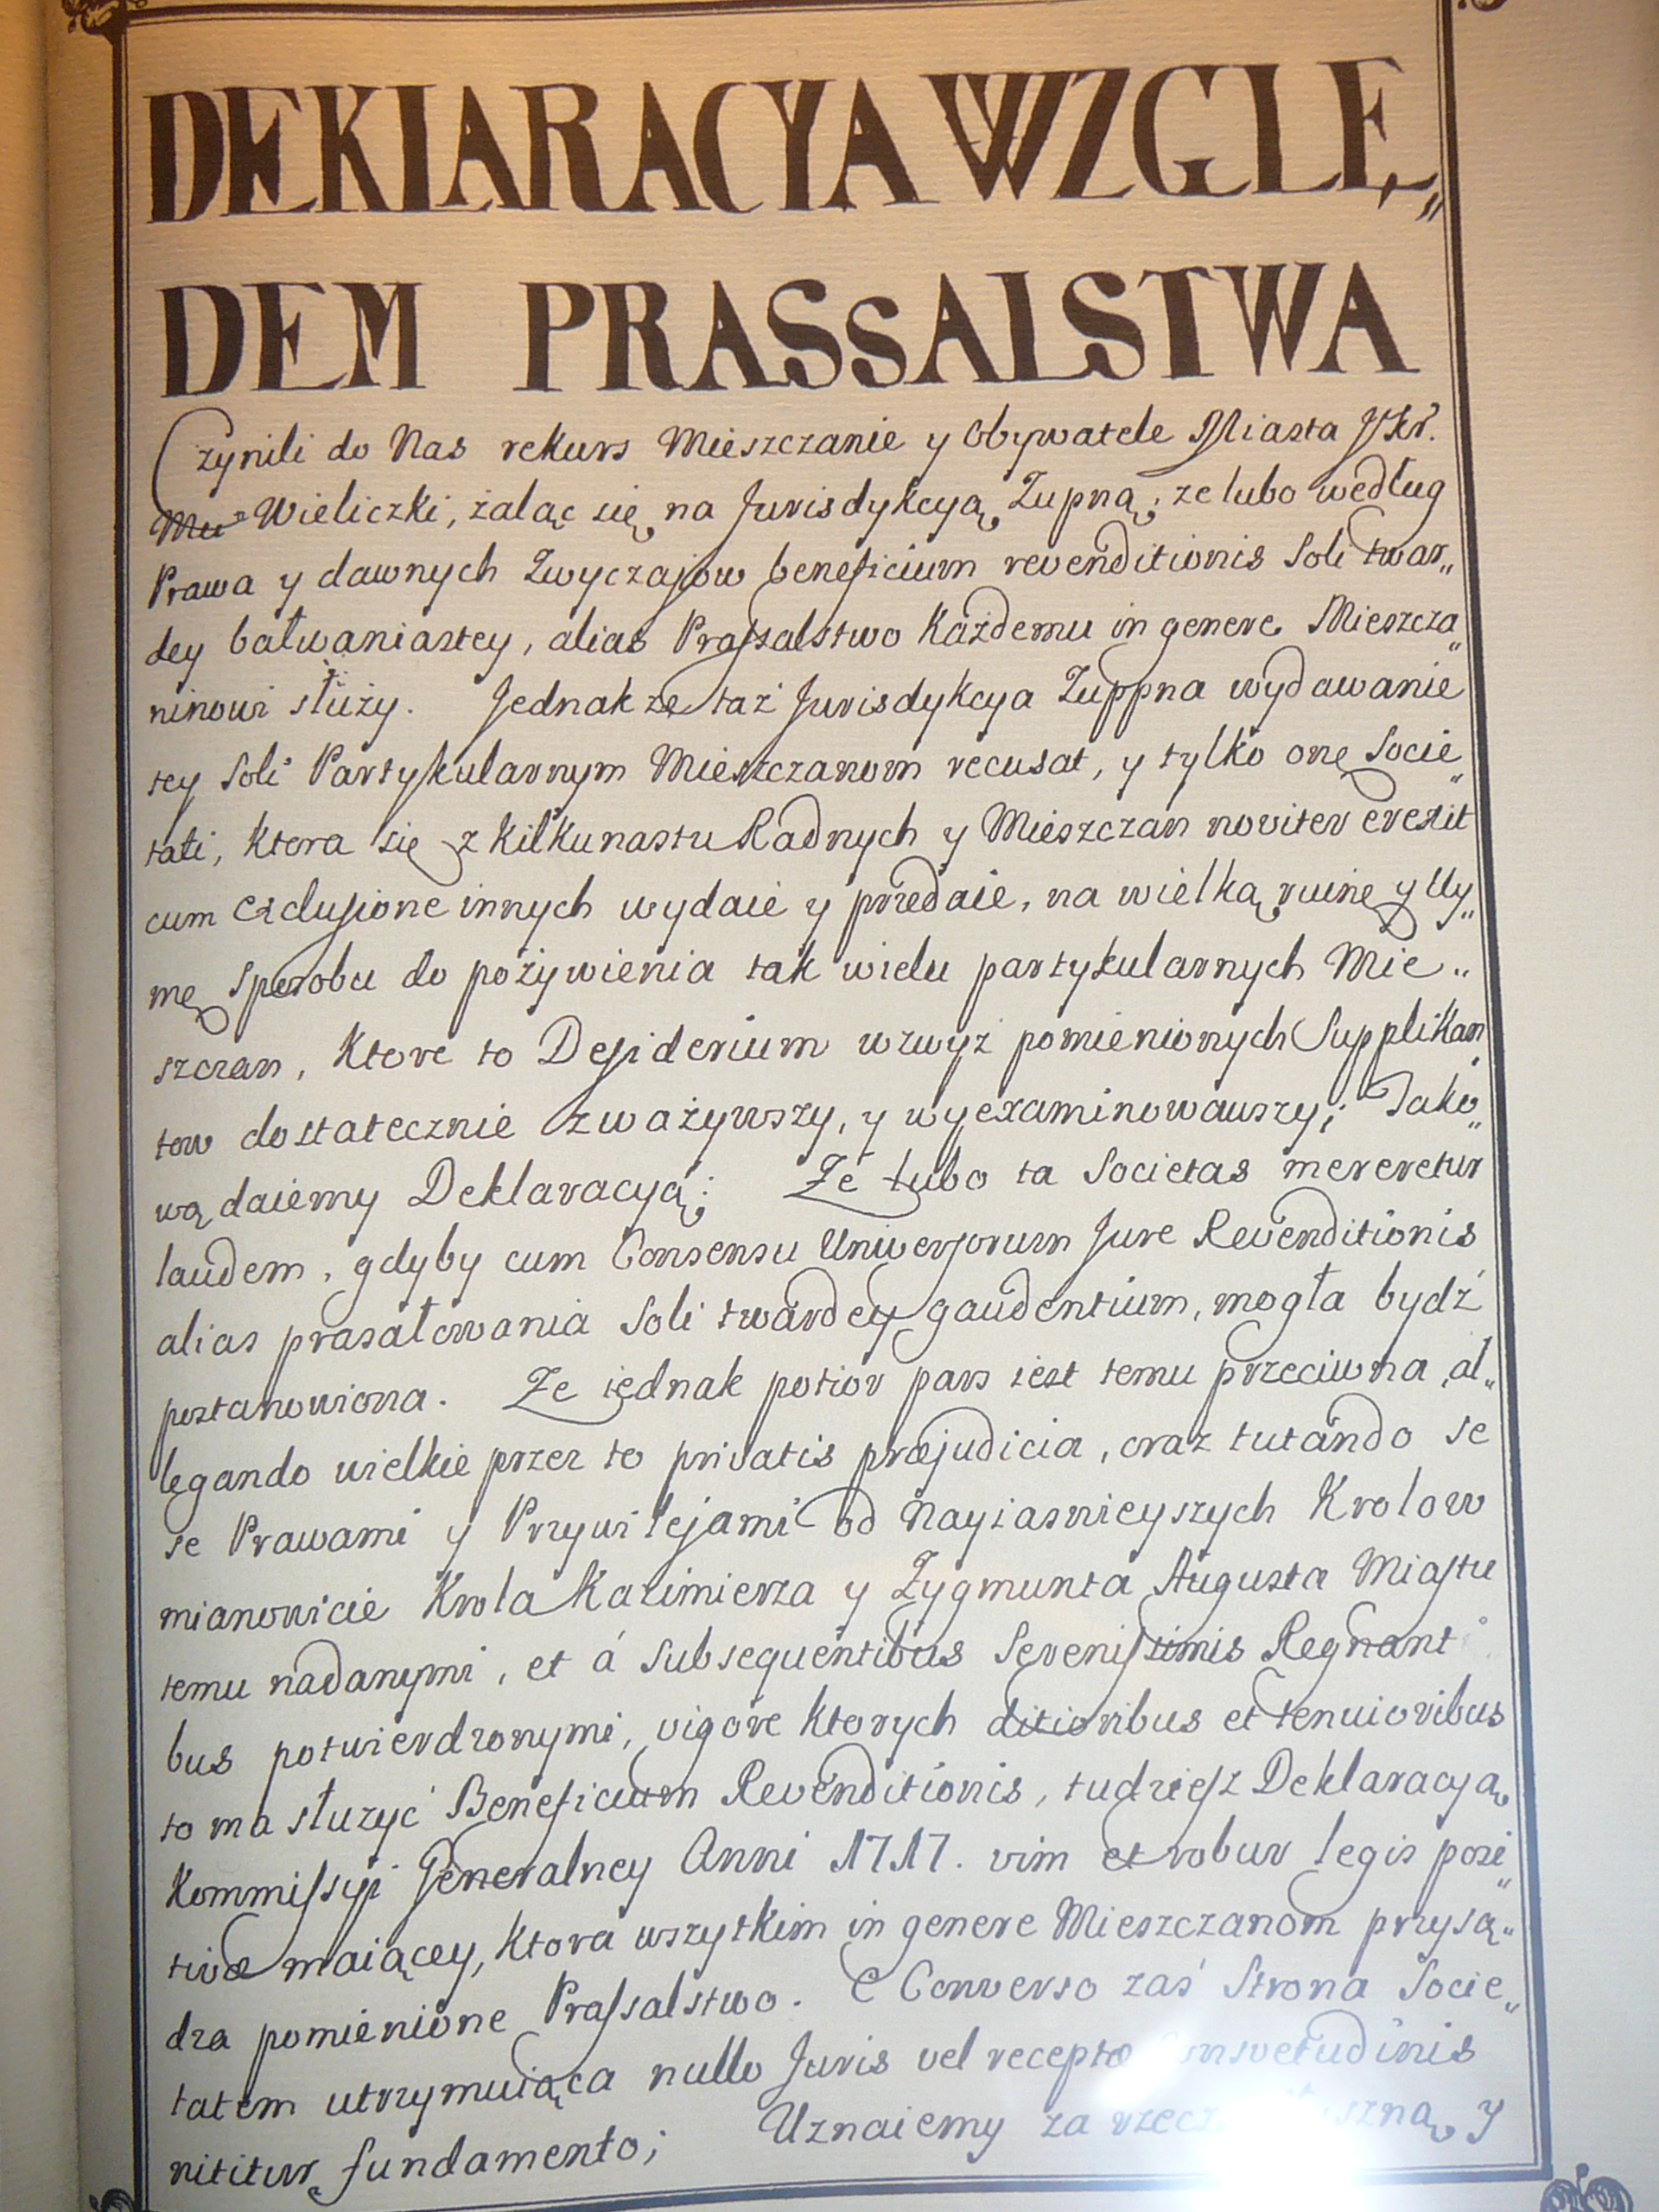 DEKLARACYA WZGLĘ„
DEM PRASSALSTWA
Czynili do Nas rekurs Mieszczanie y Obywatele Miasta JKr.
Wieliczki, żaląc się na Jurisdykcyą Zupną; ze lubo według
Prawa y dawnych Zwyczajow beneficium revenditionis Soli twar„
dey bałwaniastey, alias Prassalstwo Każdemu in genere Mieszcza„
ninowi służy. Jednak ze taż Jurisdykcya Zuppna wydawanie
tey Soli Partykularnym Mieszczanom recusat, y tylko onę Socie„
tati, ktora się z kilkunastu Radnych y Mieszczan noviter erexit
cum exclusione innych wydaie y przedaie, na wielką ruinę y Uy„
mę Sposobu do pożywienia tak wielu partykularnych Mie„
szczan, Ktore to Desiderium wzwyż pomienionych Supplikan„
tow dostatecznie zważywszy, y wyexaminowawszy; Tako„
wą daiemy Deklaracyą; Ze lubo ta Societas mereretur
laudem, gdyby cum Consensu Universorum Jure Revenditionis
alias prasałowania Soli twardey gaudentium, mogła bydź
postanowiona. Ze iednak potior pars iest temu przeciwna, al„
legando wielkie przez to privatis præjudicia, oraz tutando se
se Prawami y Przywilejami od Nayiasnieyszych Krolow
mianowicie Krola Kazimierza y Zygmunta Augusta Miastu
temu nadanymi, et á Subsequentibus Serenissimis Regnanti
bus potwierdzonymi, vigore ktorych ditioribus et tenuioribus
to ma służyć Beneficium Revenditionis, tudziesz Deklaracyą
Kommissyi Generalney Anni 1717. vim et robur legis posi„
tivæ maiącey, ktora wszytkim in genere Mieszczanom przysą„
dza pomienione Prassalstwo. E Converso zaś Strona Socie„
tatem utrzymuiąca nullo Juris vel receptæ Consvetudinis
nititur fundamento; Uznaiemy za rzecz y